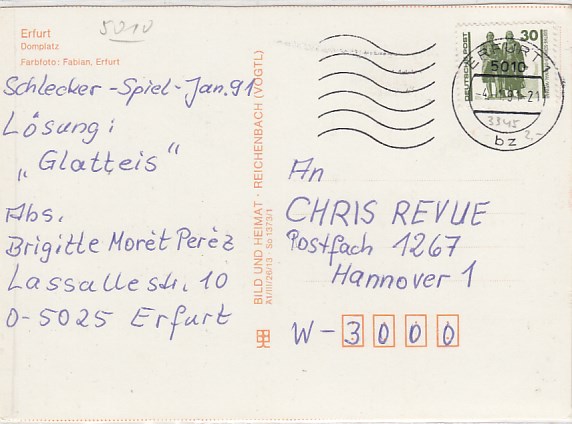 Erfurt
Domplatz
Farbfoto: Fabian, Erfurt
5010
Schlecker-Spiel-Jan. 91
Lösung:
„Glatteis“
Abs.
Brigitte Morèt Perèz
Lassallestr. 10
O-5025 Erfurt
BILD UND HEIMAT · REICHENBACH (VOGTL)
A1/III/26/13 · So 1373/1
DEUTSCHE POST
30
ERFURT 1
5010
91-21
bz
3345
2,-
An
CHRIS REVUE
Postfach 1267
Hannover 1
W-3000